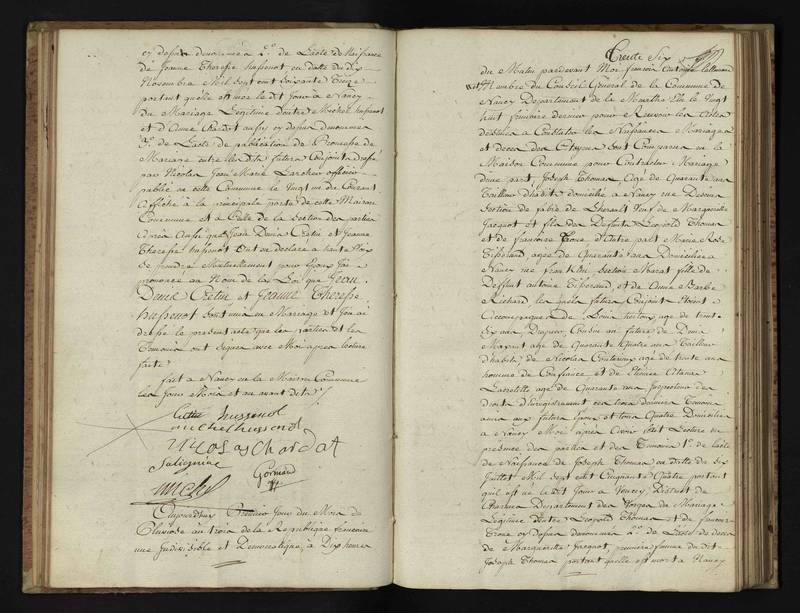 cy dessus denommée 2.o de L'acte de Naissance
de Jeanne Therese hussenot en datte du dix
Novembre Mil Sept cent soixante Treize
portant quelle est née le dit Jour à Nancy
du Mariage Legitime d'entre Michel hussenot
et d'Anne Chardat aussy cy dessus denommés
3.o de L'acte de publication de Promesse de
Mariage entre les dits futurs Conjoints dressé
par Nicolas Jean Marie officier
publié en cette Commune le Vingt un du Courant
affiché à la principale porte de cette Maison
Commune et à Celle de la Section des parties
après aussi que Jean Denis Cretin et Jeanne
Therese hussenot Ont eu declaré à haute Voix
se prendre Mutuellement pour Epoux J'ai
prononcé au Nom de la Loi que Jean
Denis Cretin et Jeanne Therese
hussenot sont unis en Mariage et J'en ai
dressé le present acte que les parties et les
Temoins ont signés avec Moi après lecture
faite
fait à Nancy en la Maison Commune
les Jour Mois et an avant dits
hussenot
michel hussenot
nicolas Chardat
Salignine
Gormand
Aujourdhuy Premier Jour du Mois de
Pluviose an trois de la Republique francaise
une Indivisible et Democratique, à Dix heures
Trente Six
du Matin pardevant Moi francois Antoine Lallemand
Membre du Conseil General de la Commune de
Nancy Departement de la Meurthe Elu le Vingt
huit frimaire dernier pour Recevoir les Actes
destinés à Constater les Naissances Mariages
et Decès des Citoyens Sont Comparus en la
Maison Commune pour Contracter Mariage
d'une part, Joseph Thomas Agé de Quarante ans
Tailleur d'habits domicilié à Nancy rue
Section de Veuf de Marguerite
Jacquot et fils des Defunts Leopold Thomas
et de francoise D'Autre part Marie Rose
Tisserand agée de Quarante ans Domiciliée à
Nancy rue Section Marat fille de
Deffunt antoine Tisserand, et de Anne Barbe
Richard les quels futurs Conjoints étoient
accompagnés de Louis agé de trente
Six ans Drapier Cousin au futur de Denis
agé de Quarante Quatre ans Tailleur
d'habits de Nicolas agé de trente ans
homme de Confiance et de
agé de Quarante ans Inspecteur des
droits d'Enregistrement ces trois derniers Temoins
amis aux futurs Epoux et tous Quatre Domiciliés
à Nancy Moi après Avoir fait Lecture en
presence des parties et des Temoins 1.o de l'acte
de Naissance de Joseph Thomas en datte du six
Juillet Mil Sept cent Cinquante Quatre portant
qu'il est né le dit Jour à District de
Departement des Vosges du Mariage
Legitime d'entre Leopold Thomas et de francoise
cy dessus denommés 2.o de L'acte de decès
de Marguerite Jacquot, premiere femme du dit
Joseph Thomas portant quelle est morte à Nancy